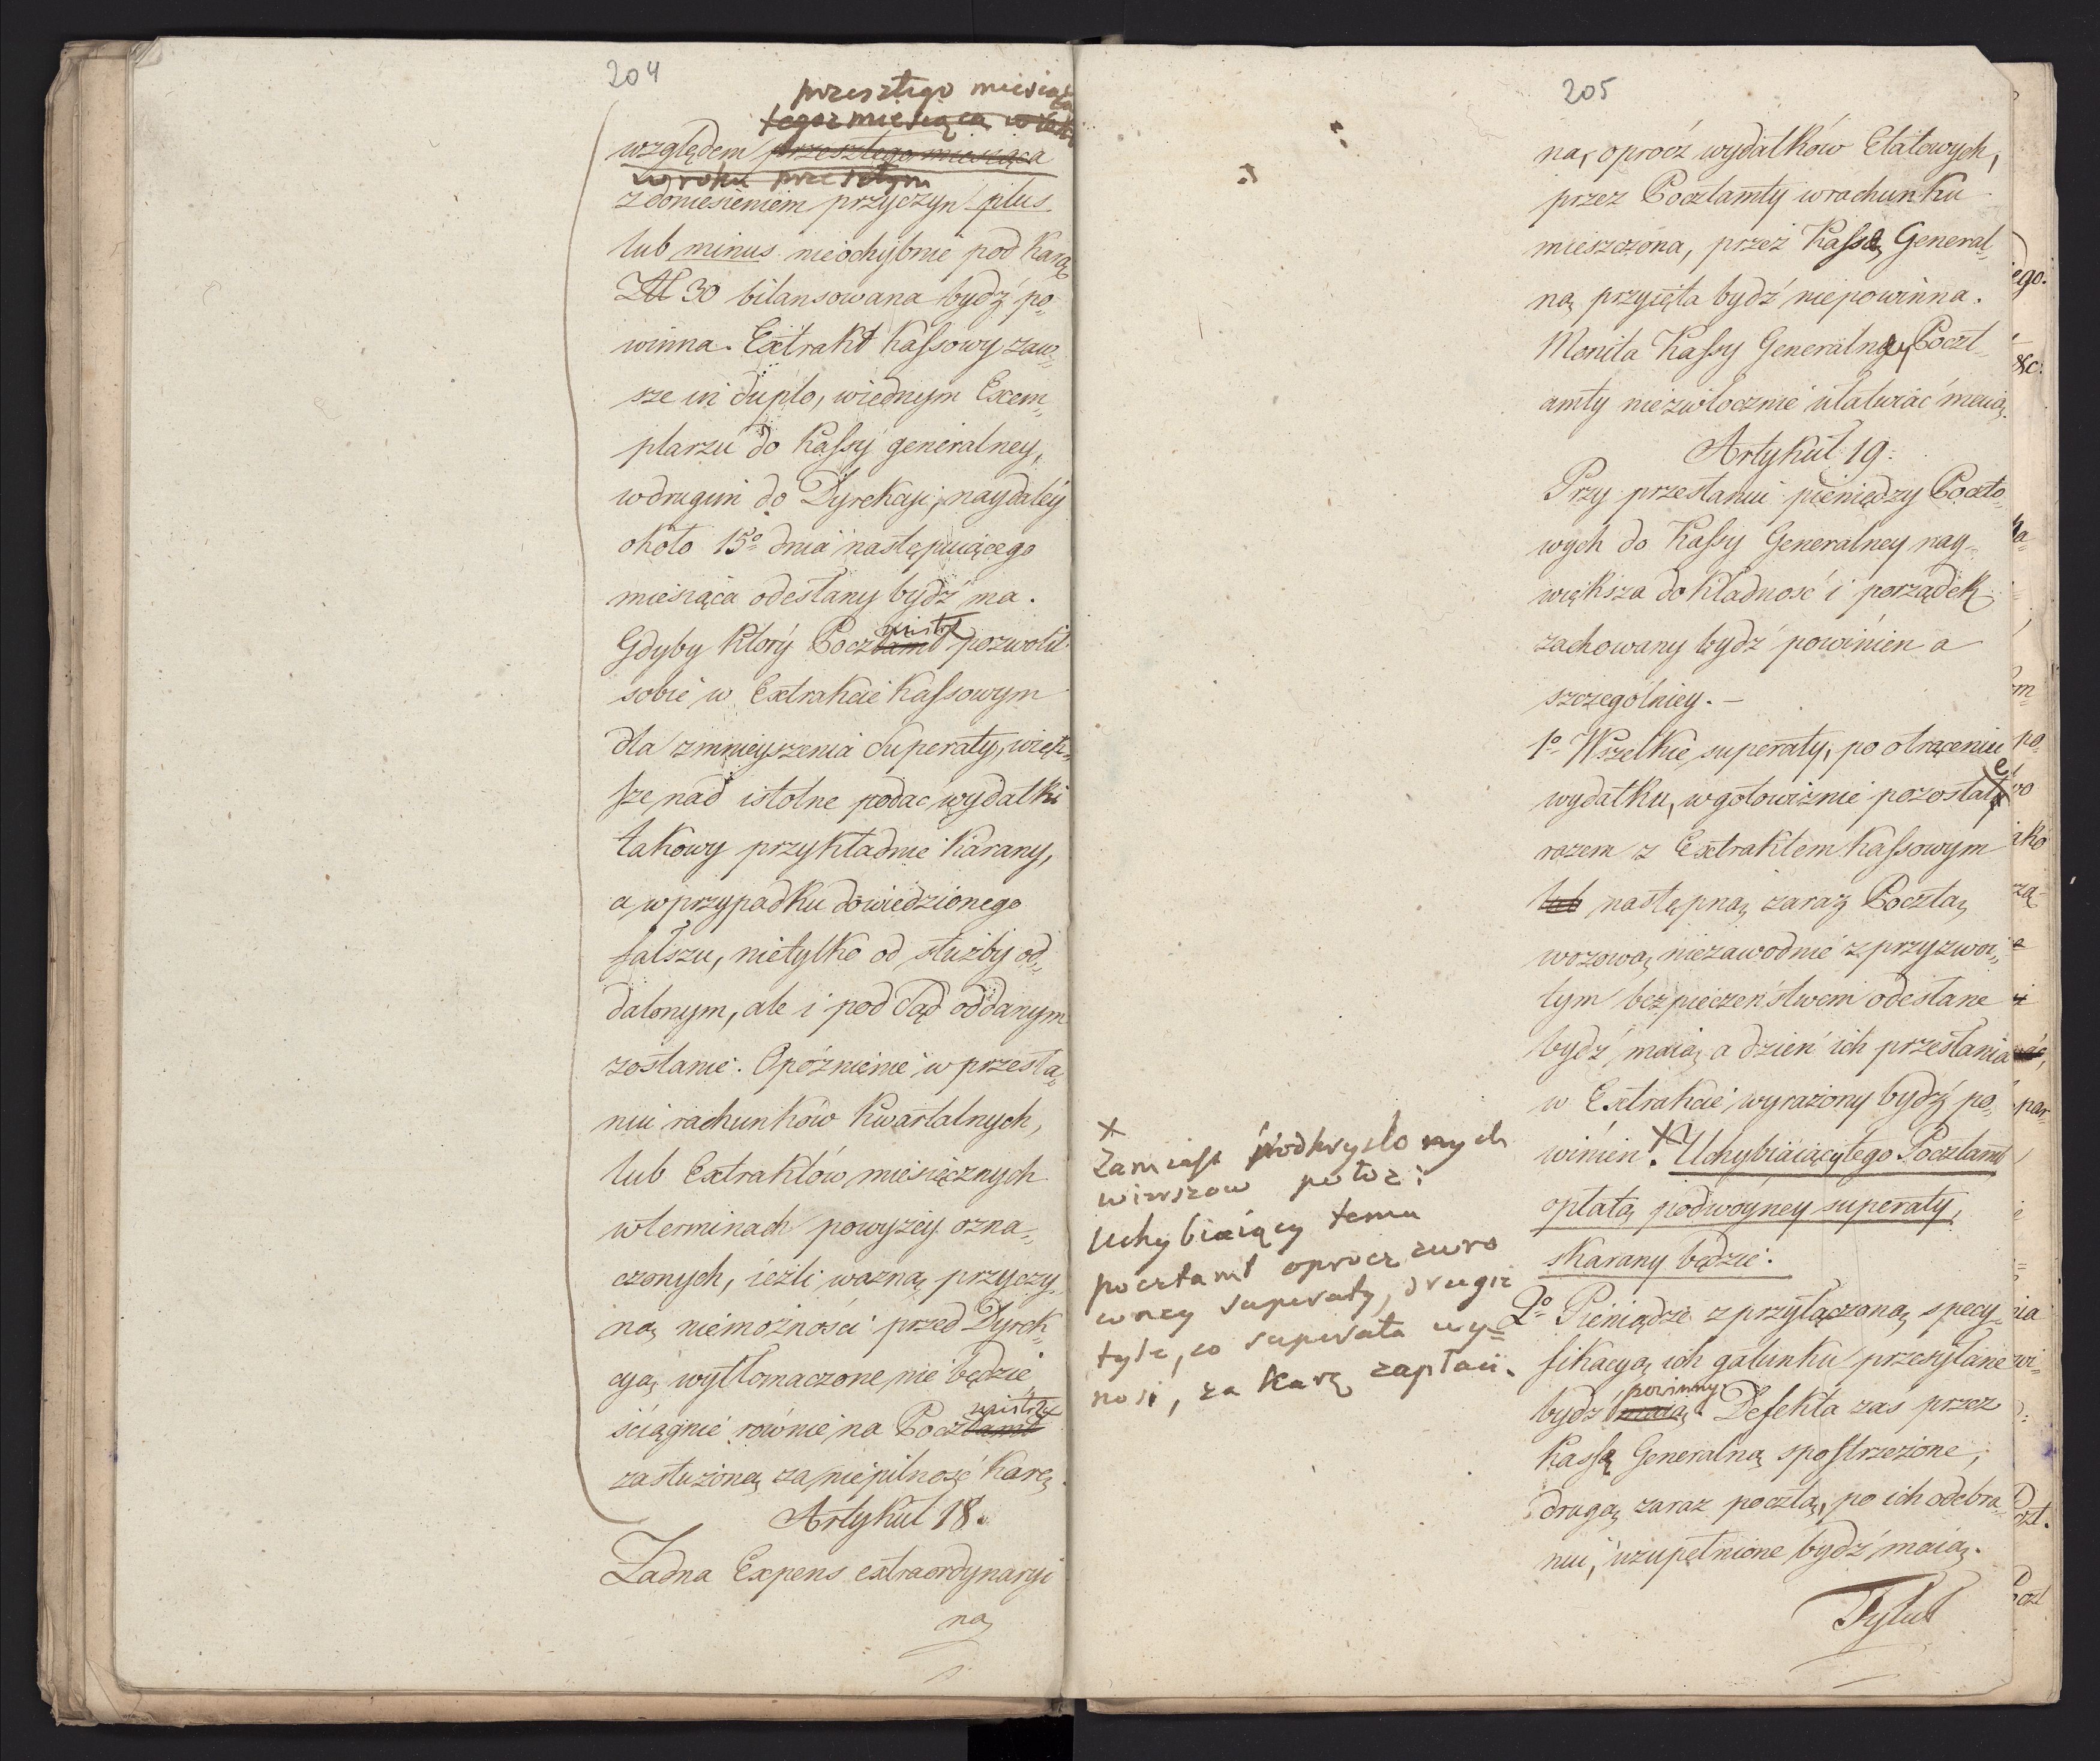 204
przeszłego miesiąca
tegoż miesiąca w roku
względem przeszłego miesiąca
w roku przeszłym
z doniesieniem przyczyn plus
lub minus nieochybnie pod karą
Zł 30 bilansowana bydź po„
winna. Extrakt Kassowy zaw„
sze in duplo, wiednym Exem„
plarzu do Kassy generalney,
wdrugim do Dyrekcyi, naydaléy
około 15º dnia następuiącego
miesiąca odesłany bydź ma.
Gdyby który Pocztamt mistrz pozwolił
sobie w Extrakcie Kassowym
dla zmnieyszenia Superaty, więk„
sze nad istotne podac wydatki
takowy przykładnie karany,
a wprzypadku dowiedzionego
fałszu, nietylko od służby od„
dalonym, ale i pod Sąd oddanym
zostanie. Opóźnienie w przesła„
niu rachunków Kwartalnych,
lub Extraktów miesięcznych
wterminach powyżéy ozna„
czonych, ieżli ważną przyczy„
ną niemożności przed Dyrek„
cyą wytłomaczone nie będzie
ściągnie równie na Pocztamt mistrza
zasłużoną za niepilność karę.
Artykuł 18.
Żadna Expens extraordynaryi
na,
205
na, oprócź wydatków Etatowych,
przez Pocztamty wrachunku
mieszczona, przez Kassę General„
ną przyięta bydź niepowinna.
Monita Kassy Generalney Poczt„
amty niezwłocznie ułatwiać maią.
Artykuł 19.
Przy przesłaniu pieniędzy Poczto„
wych do Kassy Generalney nay„
większa dokładność i porządek
zachowany bydź powinien a
szczególniey. —
1º Wszelkie superaty, po otrąceniu
wydatku, wgotowiznie pozostałe
razem z Extraktem Kassowym
lub następną zaraz Pocztą
wozową niezawodnie z przyzwoi„
tym bezpieczeństwem odesłane
bydź maią a dzień ich przesłania
w Extrakcie wyrażony bydź po„
winien. X Uchybiaiący tego Pocztamt
opłatą podwoyney superaty,
skarany będzie.
X
Zamiast podkryslonych
wierszow położ:
Uchybiaiący temu
pocztamt oprocz zuro
wney superaty, drugie
tyle, co superata wy=
nosi, za karę zapłaci.
2º Pieniądze z przyłączoną specy„
fikacyą ich gatunku przesyłane
bydź maią powinny. Defekta zas przez
Kassę Generalną spostrzeżone,
drugą zaraz pocztą, po ich odebra„
niu, uzupełnione bydź maią.
Tytuł